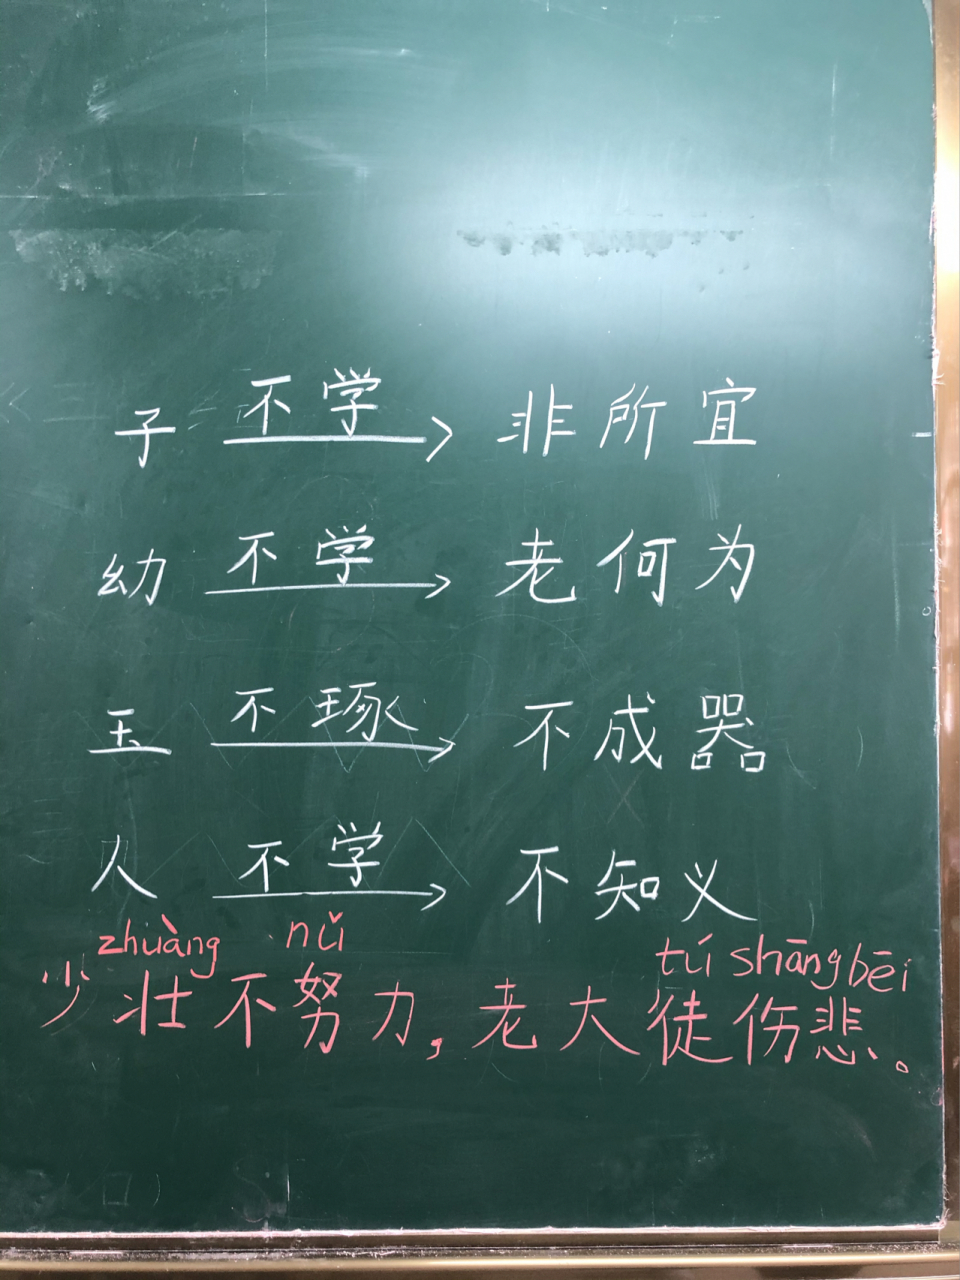 子 不学 → 非所宜
幼 不学 → 老何为
玉 不琢 → 不成器
人 不学 → 不知义
zhuàng nǔ tú shāng bēi
少壮不努力，老大徒伤悲。